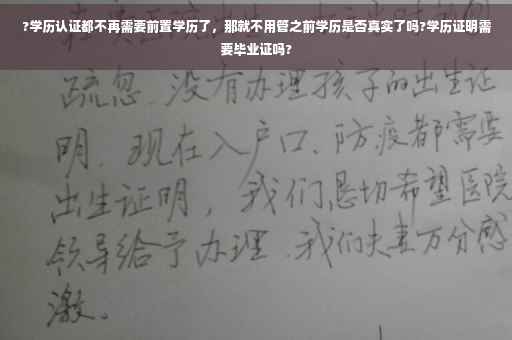 ?学历认证都不再需要前置学历了，那就不用管之前学历是否真实了吗?学历证明需
要毕业证吗?
疏忽.没有办理孩子的出生证
明.现在入户口、防疫都需要
出生证明，我们恳切希望医院
领导给予办理.我们夫妻万分感
激。